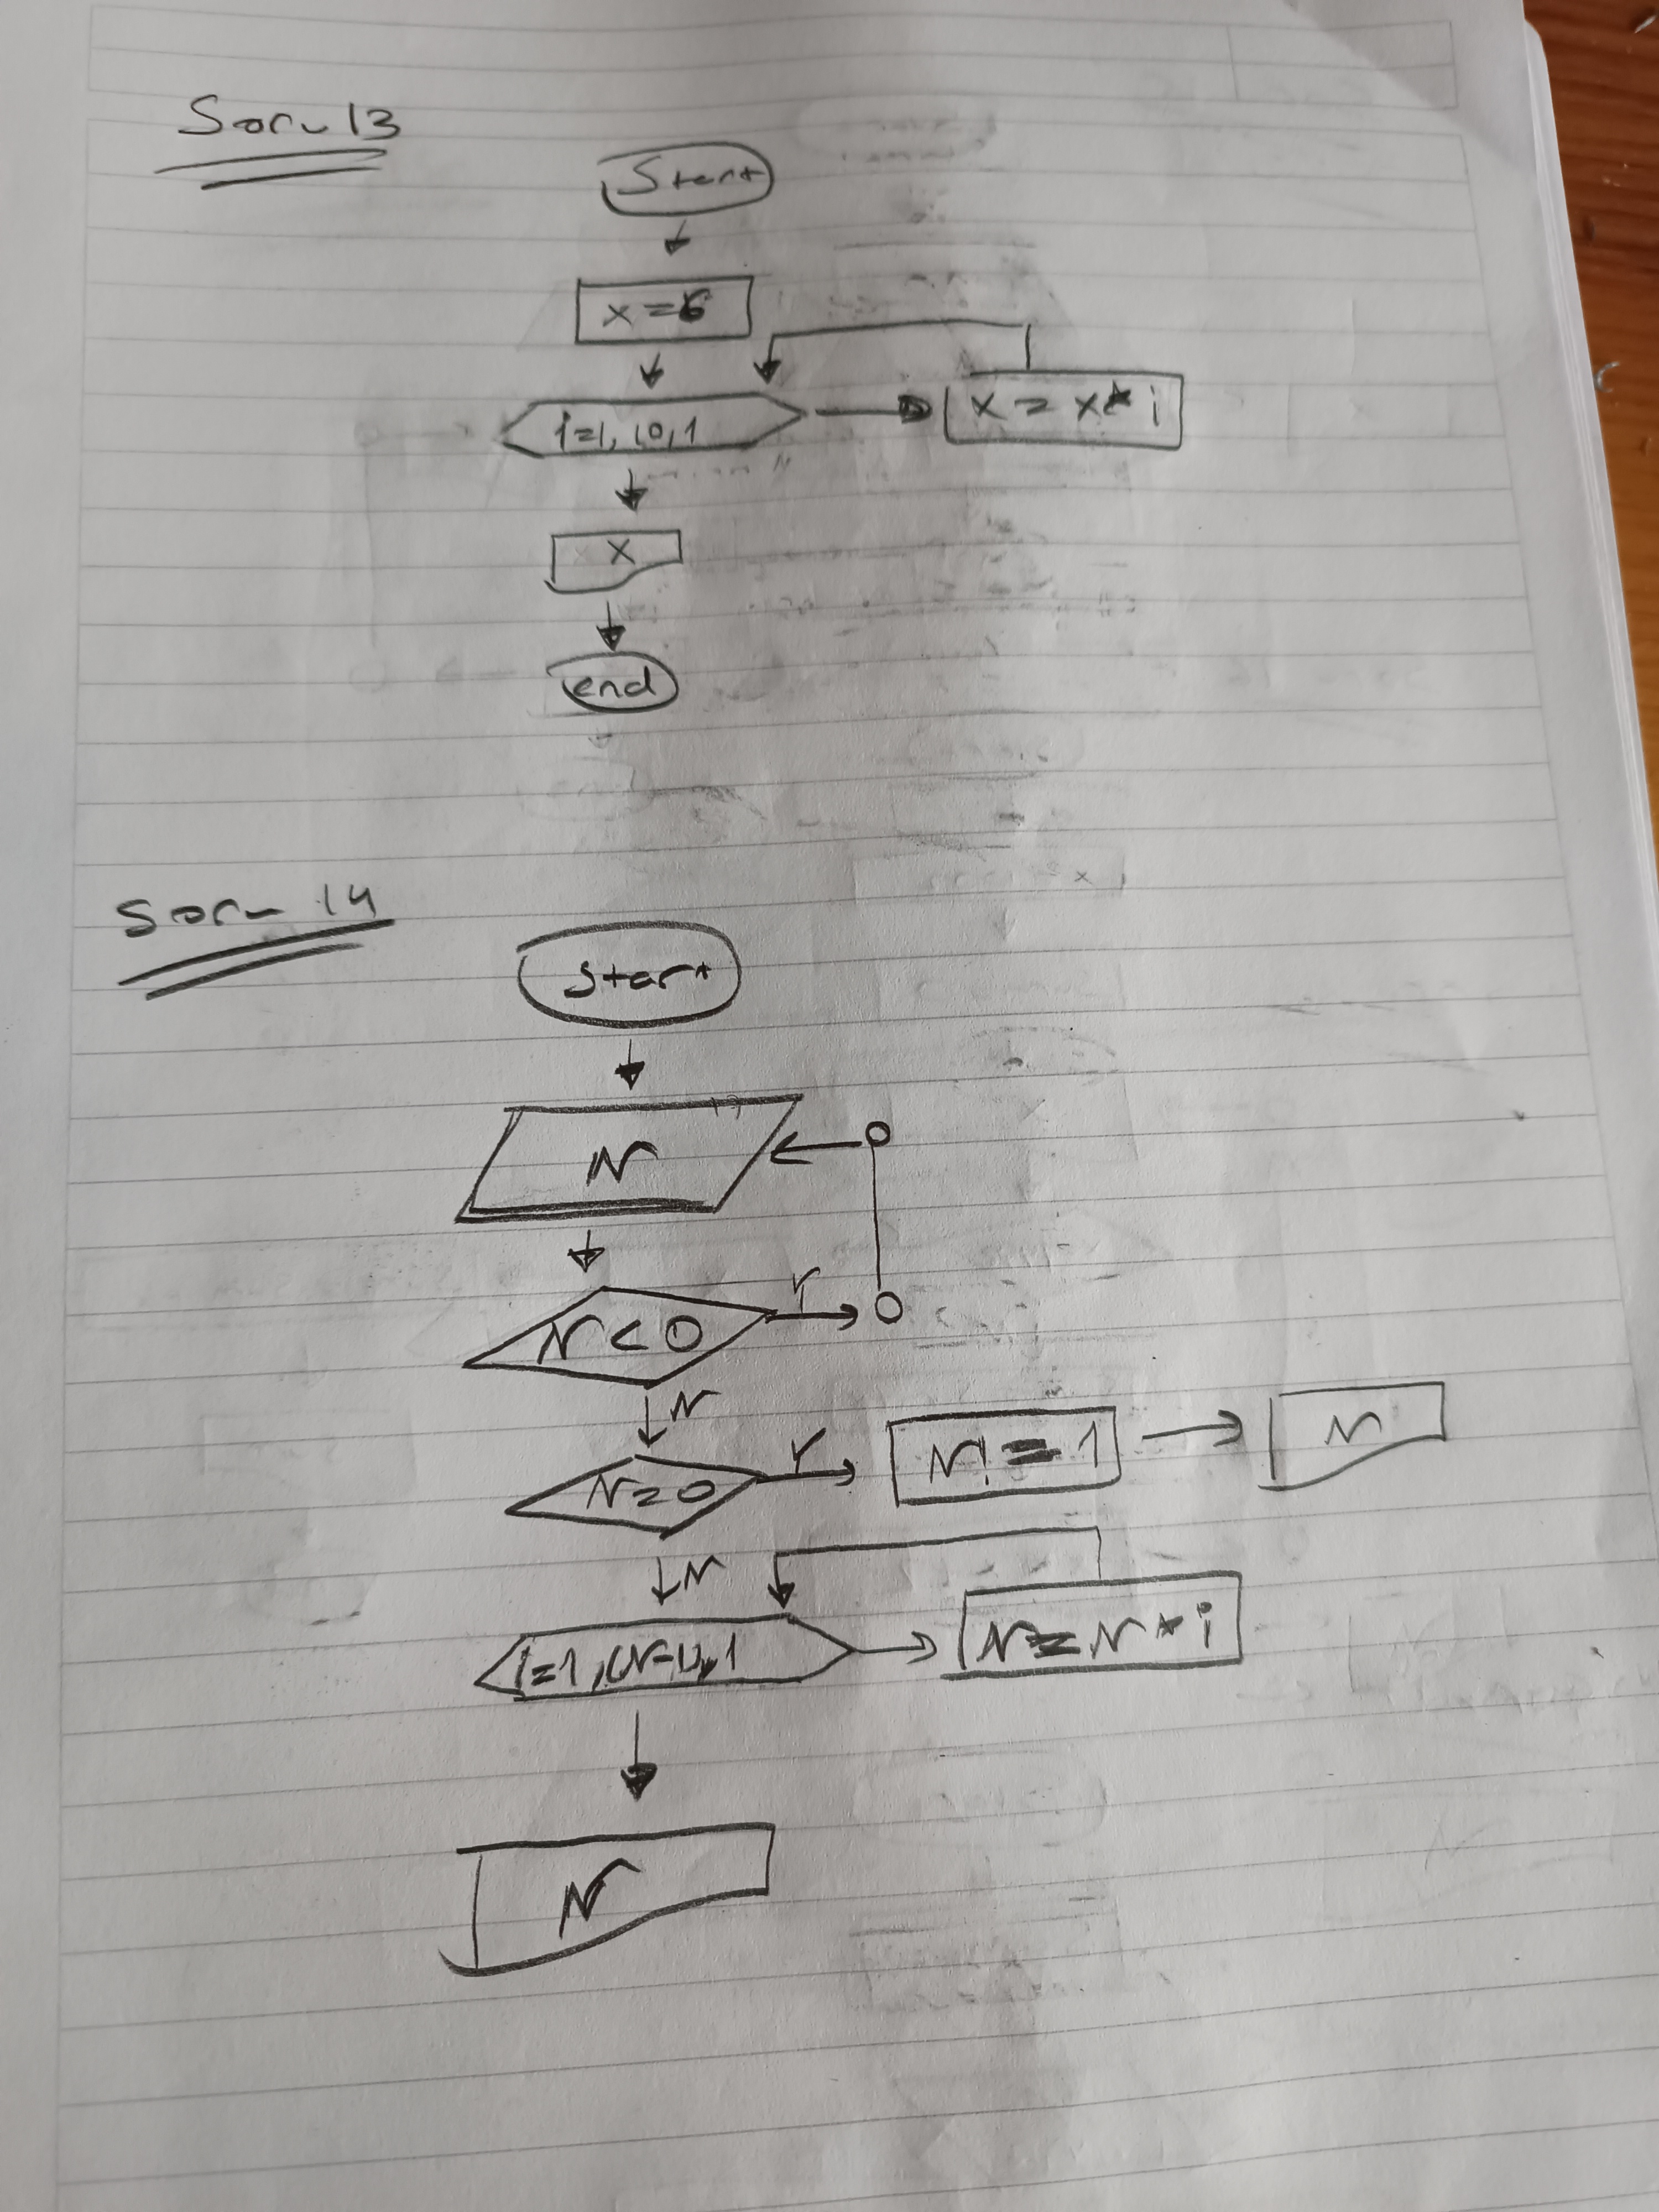 Soru 13
Start
x = 6
i=1, 10, 1
x = x * i
x
end
Soru 14
Start
N
N < 0
Y
N
N = 0
Y
N! = 1
N
N
i=1, (N-1), 1
N = N * i
N